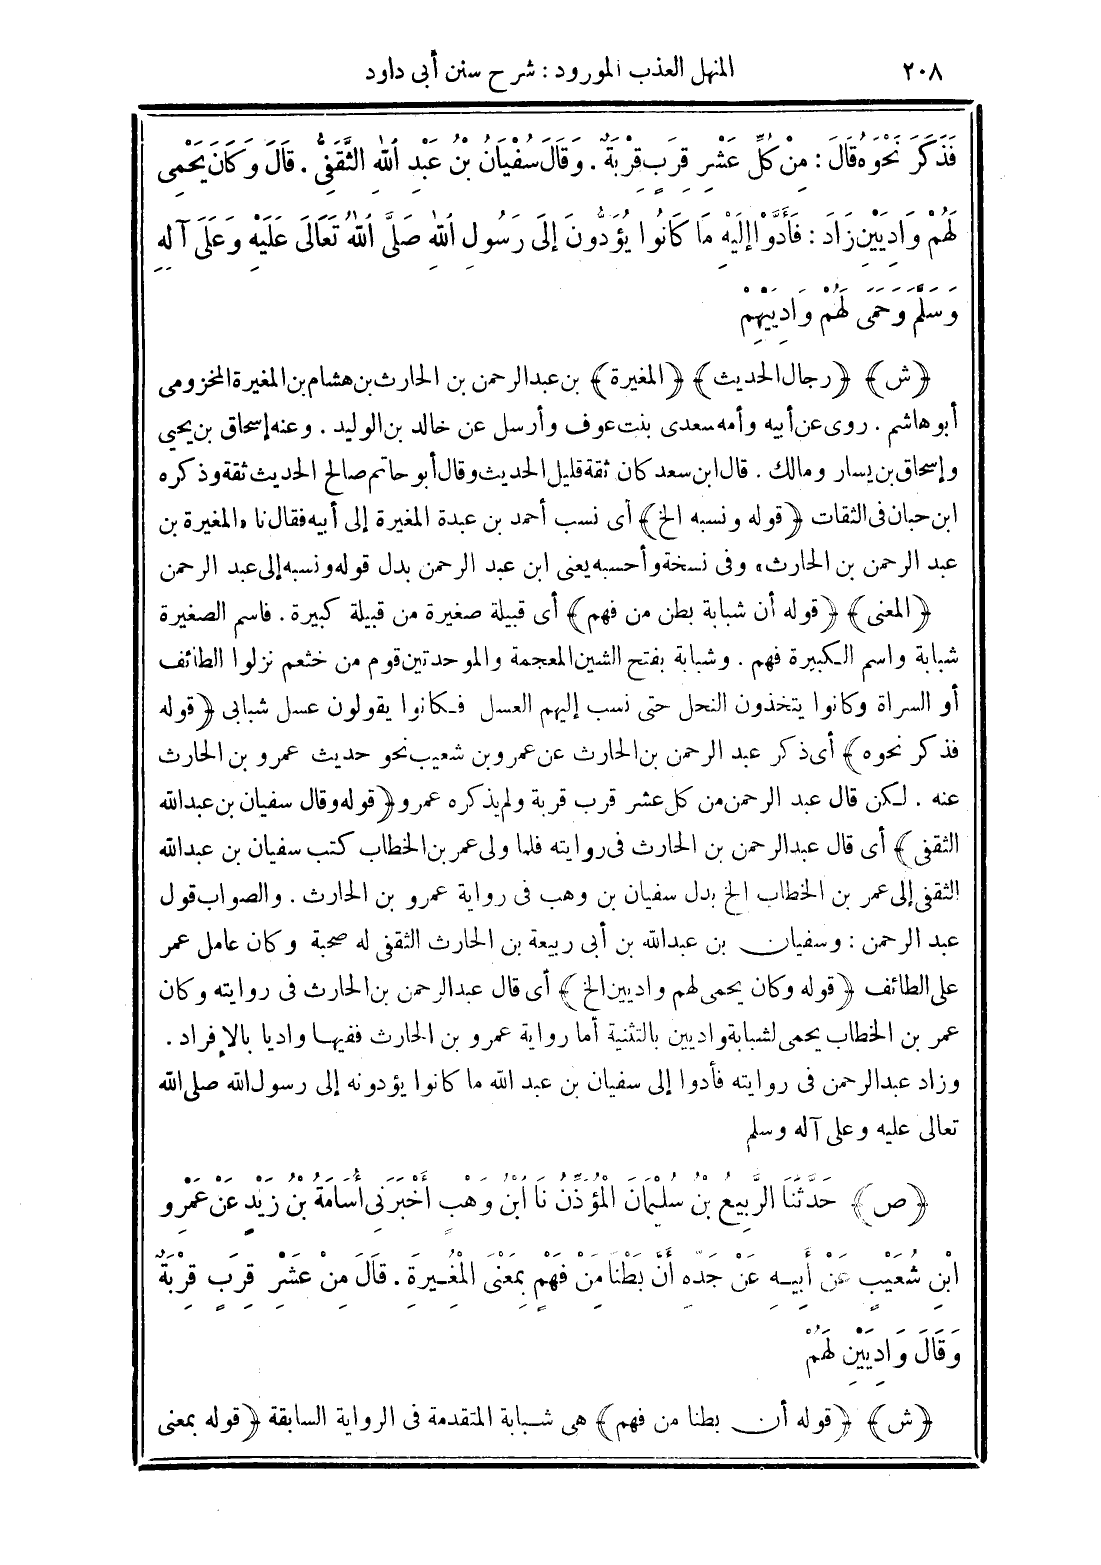 ٢٠٨ المنهل العذب المورود : شرح سنن أبى داود
فَذَكَرَ نَحْوَهُ قَالَ : مِنْ كُلِّ عَشْرِ قِرَبٍ قِرْبَةٌ . وَقَالَ سُفْيَانُ بْنُ عَبْدِ اللهِ الثَّقَفِىُّ . قَالَ وَكَانَ يَحْمِى
لَهُمْ وَادِيَيْنِ زَادَ : فَأَدَّوْا إِلَيْهِ مَا كَانُوا يُؤَدُّونَ إِلَى رَسُولِ اللهِ صَلَّى اللهُ تَعَالَى عَلَيْهِ وَعَلَى آلِهِ
وَسَلَّمَ وَحَمَى لَهُمْ وَادِيَيْهِمْ
﴿ش﴾ ﴿رجال الحديث﴾ ﴿المغيرة﴾ بن عبد الرحمن بن الحارث بن هشام بن المغيرة المخزومى
أبو هاشم . روى عن أبيه وأمه سعدى بنت عوف وأرسل عن خالد بن الوليد . وعنه إسحاق بن يحيى
وإسحاق بن يسار ومالك . قال ابن سعد كان ثقة قليل الحديث وقال أبو حاتم صالح الحديث ثقة وذكره
ابن حبان فى الثقات ﴿قوله ونسبه الخ﴾ أى نسب أحمد بن عبدة المغيرة إلى أبيه فقال نا «المغيرة بن
عبد الرحمن بن الحارث» وفى نسخة وأحسبه يعنى ابن عبد الرحمن بدل قوله ونسبه إلى عبد الرحمن
﴿المعنى﴾ ﴿قوله أن شبابة بطن من فهم﴾ أى قبيلة صغيرة من قبيلة كبيرة . فاسم الصغيرة
شبابة واسم الكبيرة فهم . وشبابة بفتح الشين المعجمة والموحدتين قوم من خثعم نزلوا الطائف
أو السراة وكانوا يتخذون النحل حتى نسب إليهم العسل فكانوا يقولون عسل شبابى ﴿قوله
فذكر نحوه﴾ أى ذكر عبد الرحمن بن الحارث عن عمرو بن شعيب نحو حديث عمرو بن الحارث
عنه . لكن قال عبد الرحمن من كل عشر قرب قربة ولم يذكره عمرو ﴿قوله وقال سفيان بن عبدالله
الثقفى﴾ أى قال عبدالرحمن بن الحارث فى روايته فلما ولى عمر بن الخطاب كتب سفيان بن عبدالله
الثقفى إلى عمر بن الخطاب الخ بدل سفيان بن وهب فى رواية عمرو بن الحارث . والصواب قول
عبد الرحمن : وسفيان بن عبدالله بن أبى ربيعة بن الحارث الثقفى له صحبة وكان عامل عمر
على الطائف ﴿قوله وكان يحمى لهم واديين الخ﴾ أى قال عبدالرحمن بن الحارث فى روايته وكان
عمر بن الخطاب يحمى لشبابة واديين بالتثنية أما رواية عمرو بن الحارث ففيها واديا بالإفراد .
وزاد عبدالرحمن فى روايته فأدوا إلى سفيان بن عبد الله ما كانوا يؤدونه إلى رسول الله صلى الله
تعالى عليه وعلى آله وسلم
﴿ص﴾ حَدَّثَنَا الرَّبِيعُ بْنُ سُلَيْمَانَ الْمُؤَذِّنُ نَا ابْنُ وَهْبٍ أَخْبَرَنِى أُسَامَةُ بْنُ زَيْدٍ عَنْ عَمْرِو
ابْنِ شُعَيْبٍ عَنْ أَبِيهِ عَنْ جَدِّهِ أَنَّ بَطْنًا مِنْ فَهْمٍ بِمَعْنَى الْمُغِيرَةِ . قَالَ مِنْ عَشْرِ قِرَبٍ قِرْبَةٌ
وَقَالَ وَادِيَيْنِ لَهُمْ
﴿ش﴾ ﴿قوله أن بطنا من فهم﴾ هى شبابة المتقدمة فى الرواية السابقة ﴿قوله بمعنى